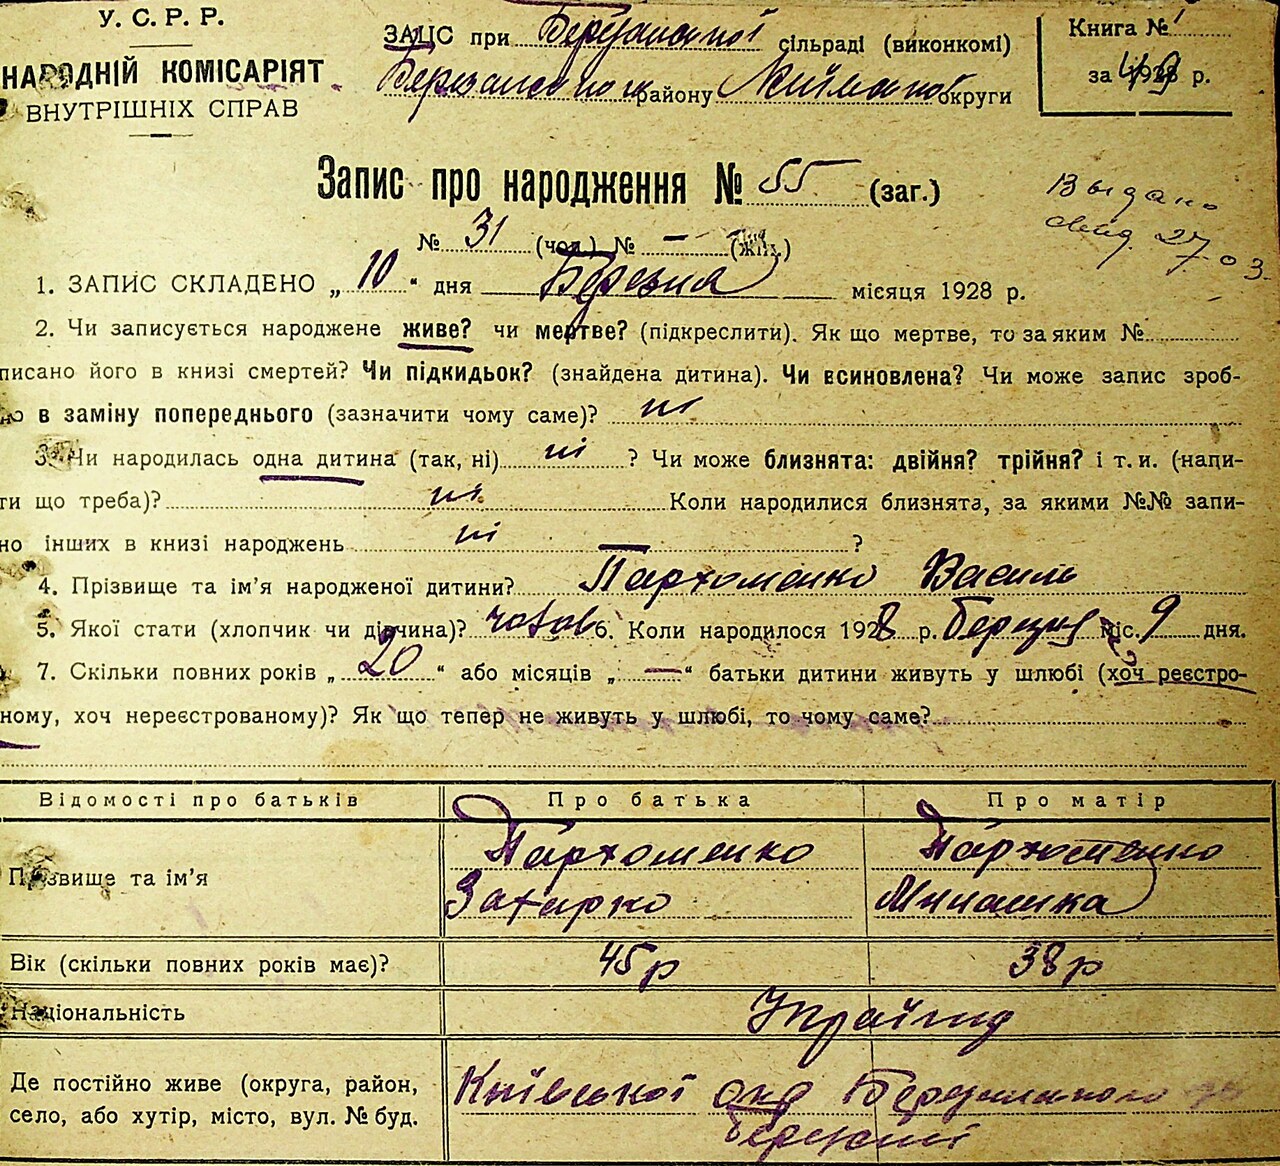 У. С. Р. Р.
НАРОДНІЙ КОМІСАРІЯТ
ВНУТРІШНІХ СПРАВ
ЗАГС при Березанської сільраді (виконкомі)
Березанського району Київської округи
Книга № 1
за 1928 р.
Запис про народження № 55 (заг.)
№ 31 (чол.) № – (жін.)
Выдано
свид. 27
1. ЗАПИС СКЛАДЕНО „ 10 “ дня Березня місяця 1928 р.
2. Чи записується народжене живе? чи мертве? (підкреслити). Як що мертве, то за яким №
писано його в книзі смертей? Чи підкидьок? (знайдена дитина). Чи всиновлена? Чи може запис зроб-
но в заміну попереднього (зазначити чому саме)? ні
3. Чи народилась одна дитина (так, ні) ні ? Чи може близнята: двійня? трійня? і т. и. (напи-
ти що треба)? ні Коли народилися близнята, за якими №№ запи-
но інших в книзі народжень ні ?
4. Прізвище та ім’я народженої дитини? Пархоменко Василь
5. Якої стати (хлопчик чи дівчина)? чолов 6. Коли народилося 1928 р. березня міс. 9 дня.
7. Скільки повних років „ 20 “ або місяців „ — “ батьки дитини живуть у шлюбі (хоч реєстро-
ному, хоч нереєстрованому)? Як що тепер не живуть у шлюбі, то чому саме?
Відомості про батьків Про батька Про матір
Прізвище та ім’я Пархоменко Захарко Пархоменко
Вік (скільки повних років має)? 45 р 38 р
Національність Україн
Де постійно живе (округа, район, Київської окр Березанського
село, або хутір, місто, вул. № буд.